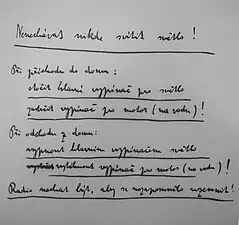 Nenechávat nikde svítit světlo !
Při příchodu do domu :
otočit hlavní vypínač pro světlo
vypínač pro motor (na vodu) !
Při odchodu z domu :
vypnout hlavním vypínačem světlo
vytáhnout vypínač pro motor (na vodu) !
Radio nechat být, aby se nezapomnělo uzemnit !